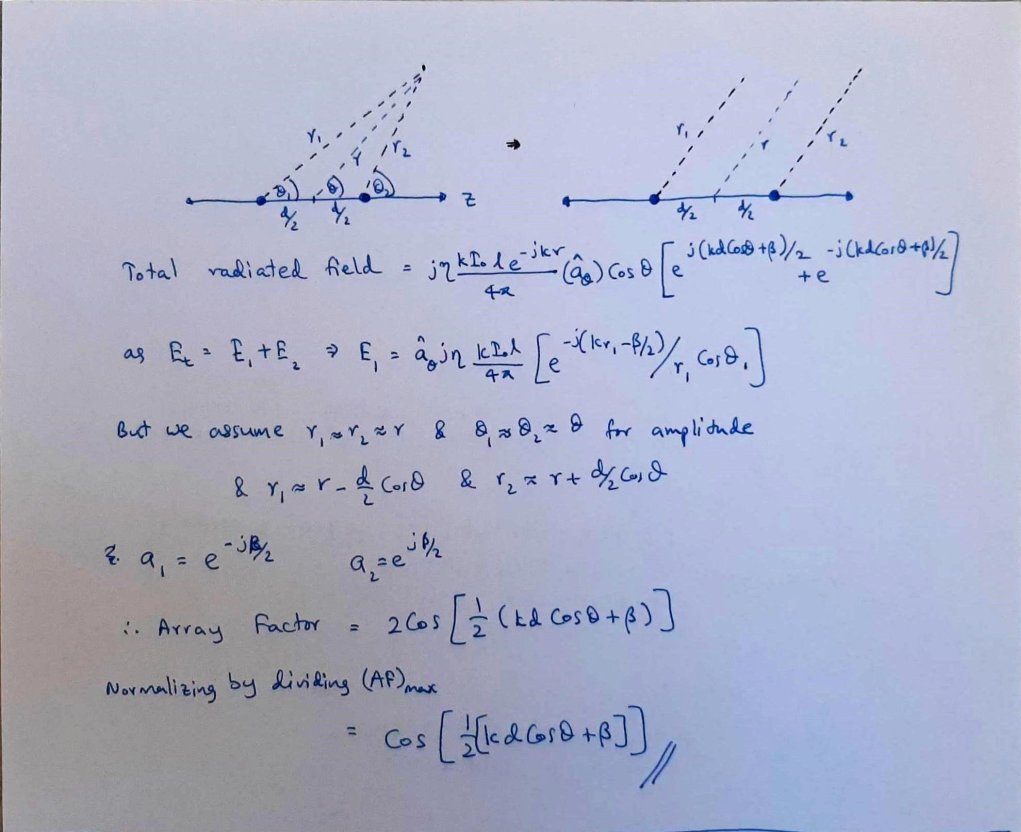 r₁ r r₂ ⇒ r₁ r r₂
θ₁ θ θ₂ Z
d/2 d/2 d/2 d/2
Total radiated field = jη kI₀le^-jkr/4π (âθ) Cos θ [e^j(kdCosθ+β)/2 + e^-j(kdCosθ+β)/2]
as Et = E₁ + E₂ ⇒ E₁ = âθjη kI₀l/4π [e^-j(kr₁-β/2)/r₁ Cosθ₁]
But we assume r₁≈r₂≈r & θ₁≈θ₂≈θ for amplitude
& r₁ ≈ r - d/2 Cosθ & r₂ ≈ r + d/2 Cosθ
& a₁ = e^-jβ/2 a₂ = e^jβ/2
∴ Array Factor = 2Cos[1/2 (kd Cosθ+β)]
Normalizing by dividing (AF)max
= Cos[1/2[kdCosθ+β]]//